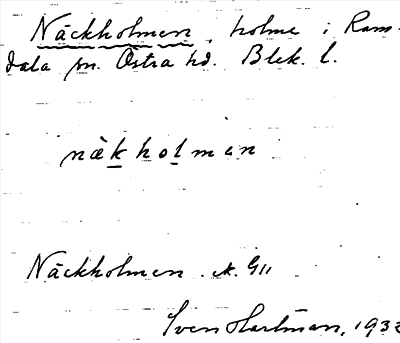 Näckholmen, holme i Ram-
dala sn. Östra hd. Blek. l.
näkholmen
Näckholmen
Sven Hartman, 1932